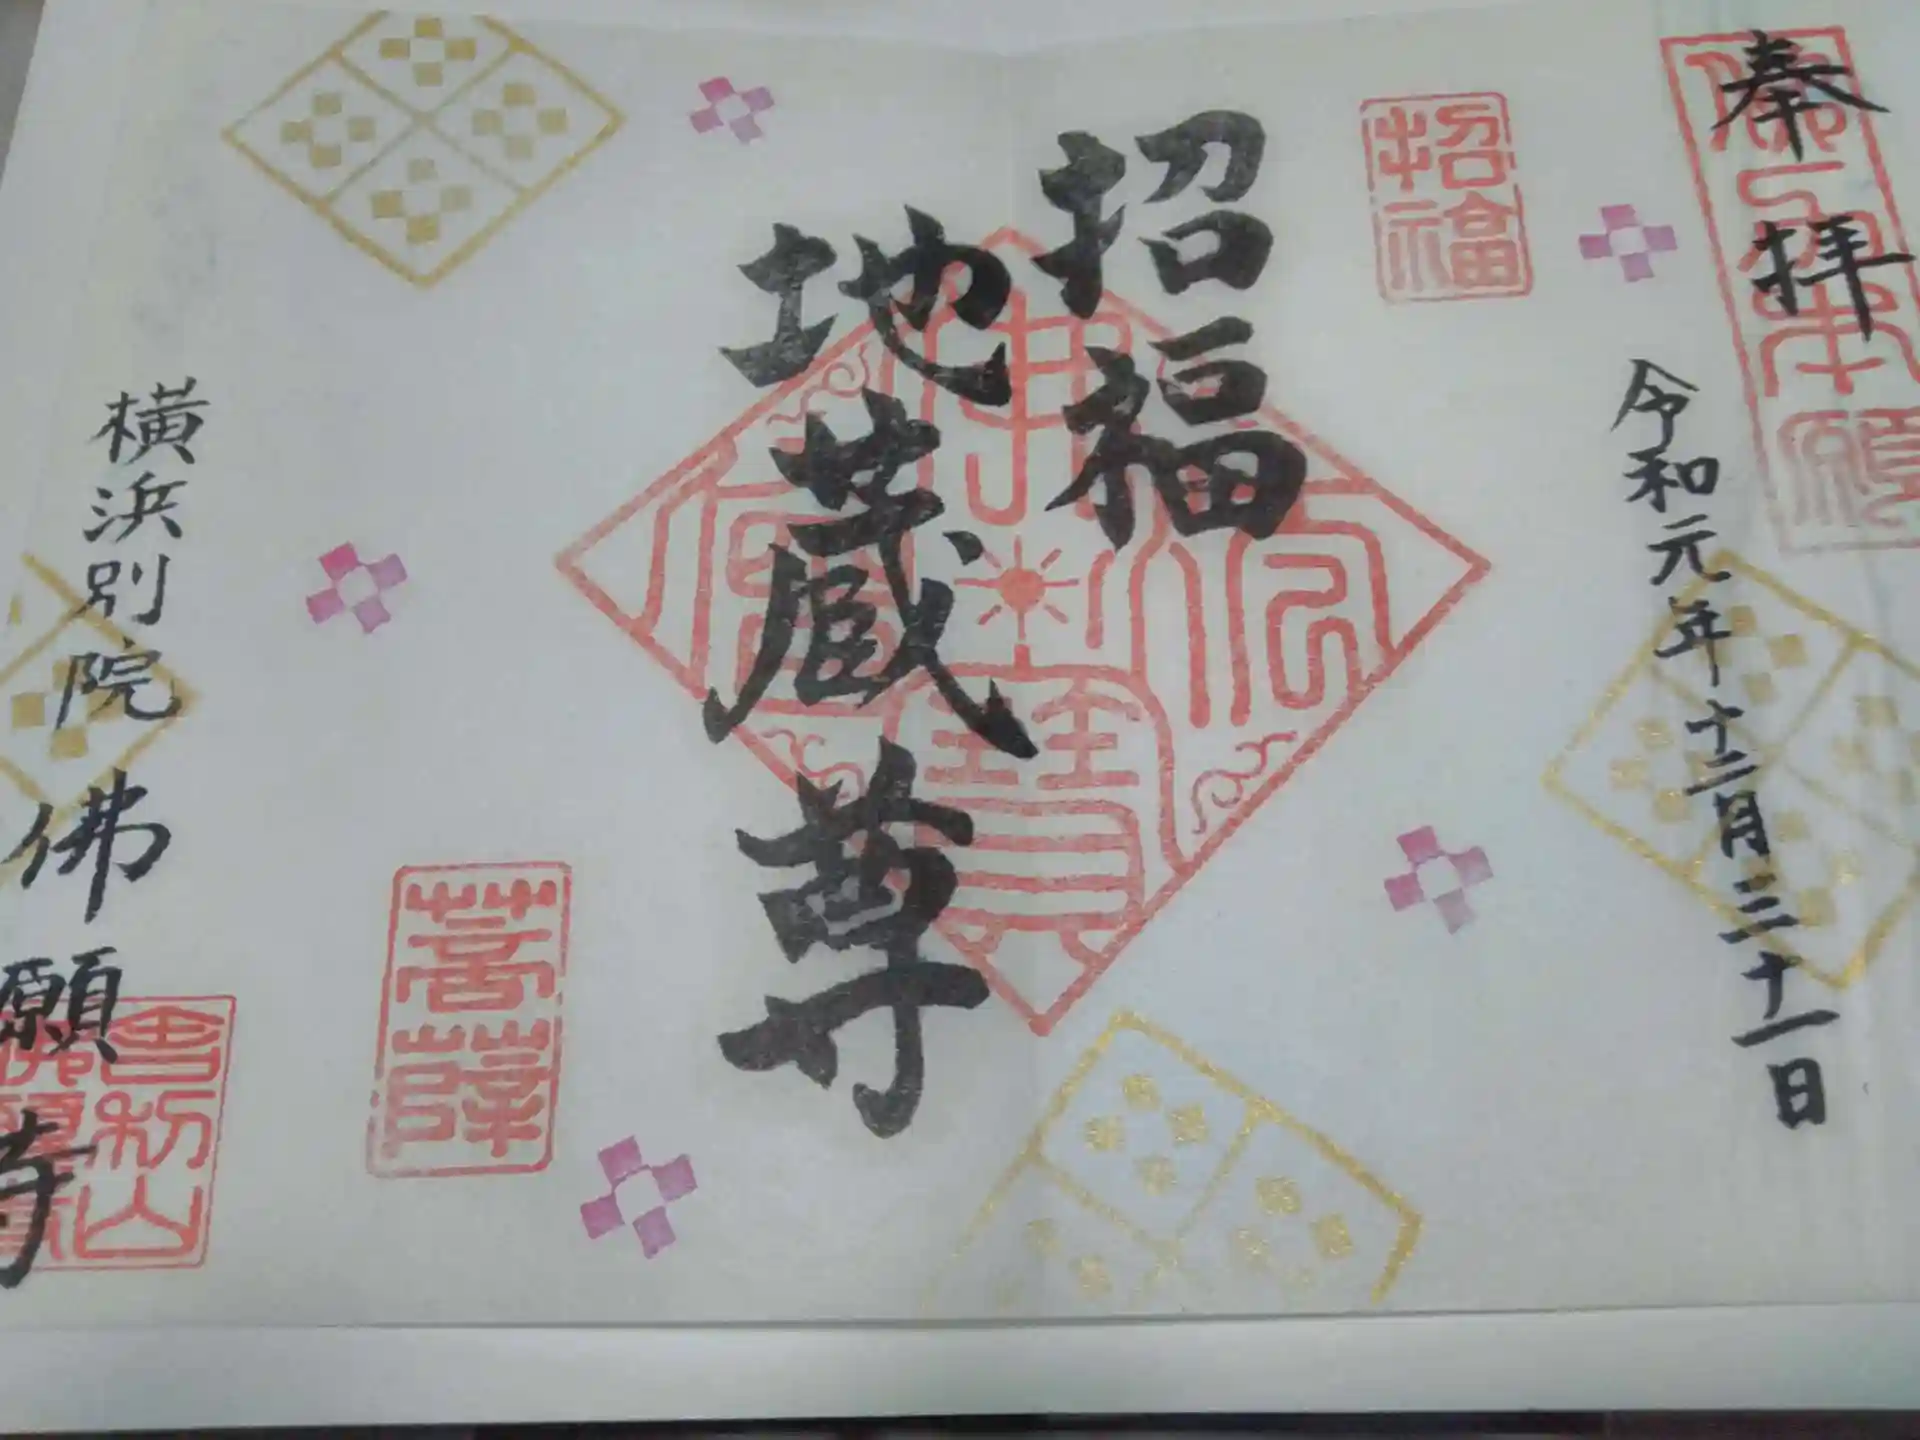 奉拝
令和元年十二月三十一日
招福
招福
地蔵尊
菩薩
横浜別院 佛願寺
舎利山